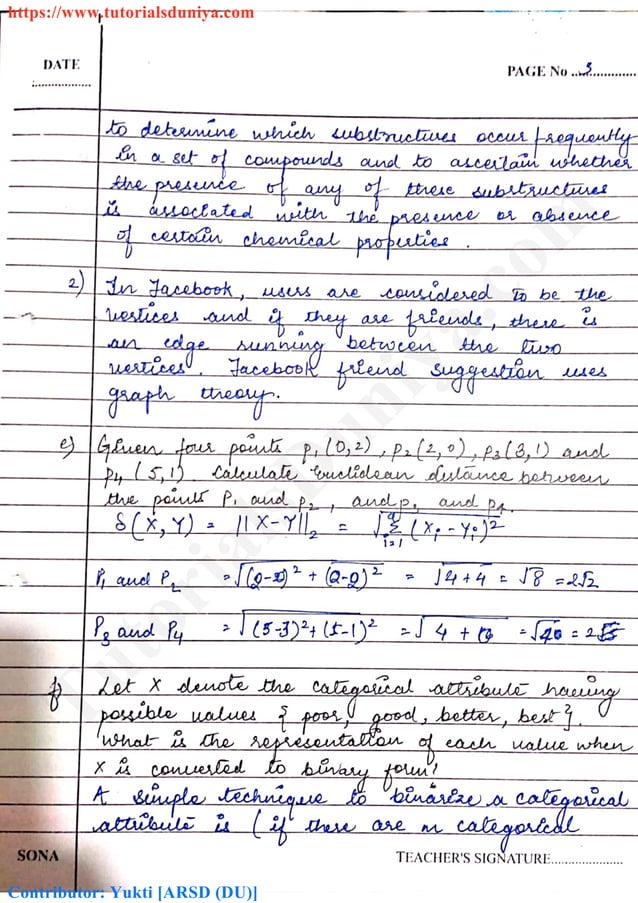 https://www.tutorialsduniya.com
DATE
PAGE No ..3..............
:.................
to determine which substructures occur frequently
in a set of compounds and to ascertain whether
the presence of any of these substructures
is associated with the presence or absence
of certain chemical properties.
2) In Facebook, users are considered to be the
vertices and if they are friends, there is
an edge running between the two
vertices. Facebook friend suggestion uses
graph theory.
e) Given four points p1(0,2), p2(2,0), p3(3,1) and
p4(5,1). Calculate Euclidean distance between
the points P1 and P2, and p3 and p4.
δ(X,Y) = ||X-Y||2 = √Σ i=1 (Xi-Yi)²
P1 and P2 = √(0-2)²+(2-0)² = √4+4 = √8 = 2√2
P3 and P4 = √(5-3)²+(5-1)² = √4+16 = √20 = 2√5
f) Let X denote the categorical attribute having
possible values { poor, good, better, best}.
What is the representation of each value when
X is converted to binary form?
A simple technique to binarize a categorical
attribute is (if there are m categorical
SONA
TEACHER'S SIGNATURE....................
Contributor: Yukti [ARSD (DU)]
TutorialsDuniya.com